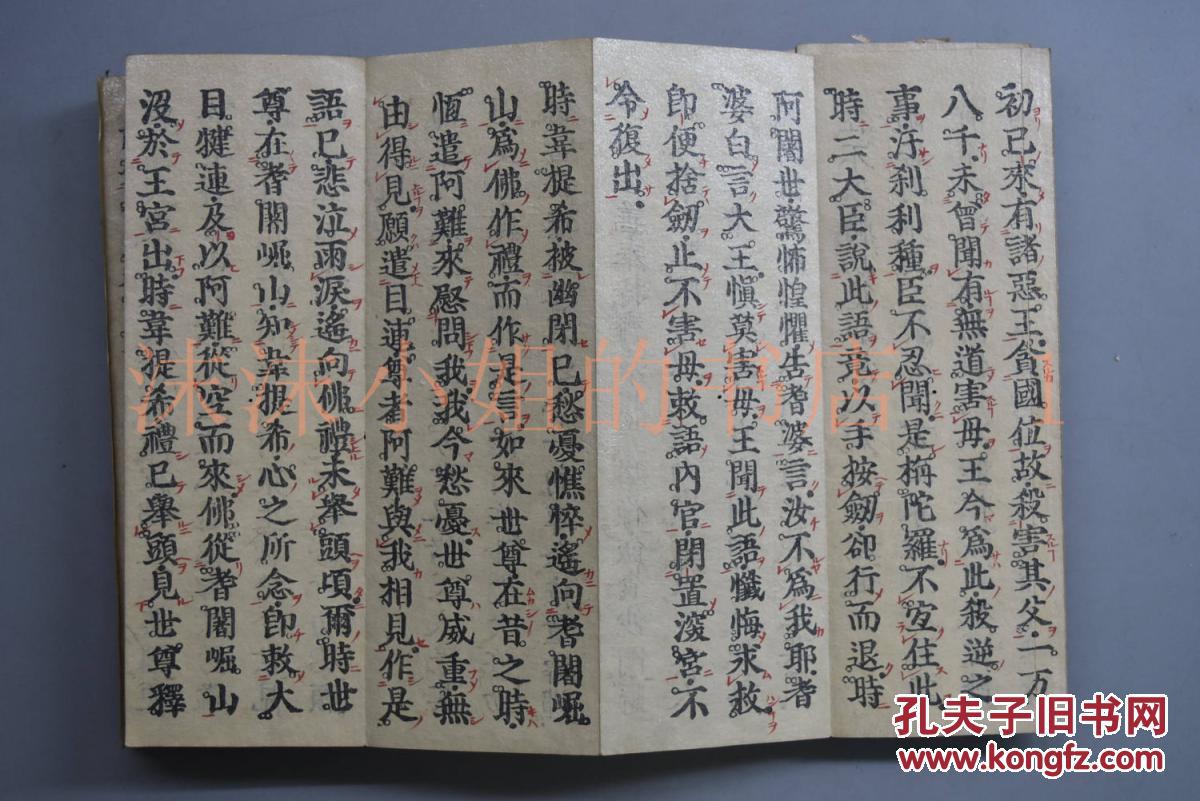 初已來有諸惡王貪國位故殺害其父一万
八千未曾聞有無道害母王今為此殺逆之
事汚刹利種臣不忍聞是栴陀羅不宜住此
時二大臣說此語竟以手按劒卻行而退時
阿闍世驚怖惶懼告耆婆言汝不為我耶耆
婆白言大王愼莫害母王聞此語懺悔求救
即便捨劒止不害母敕語內官閉置深宮不
令復出
時韋提希被幽閉已愁憂憔悴遙向耆闍崛
山為佛作禮而作是言如來世尊在昔之時
恆遣阿難來慰問我我今愁憂世尊威重無
由得見願遣目連尊者阿難與我相見作是
語已悲泣雨淚遙向佛禮未舉頭頃爾時世
尊在耆闍崛山知韋提希心之所念即敕大
目犍連及以阿難從空而來佛從耆闍崛山
沒於王宮出時韋提希禮已舉頭見世尊釋
沫沫小姐的书店
孔夫子旧书网
www.kongfz.com